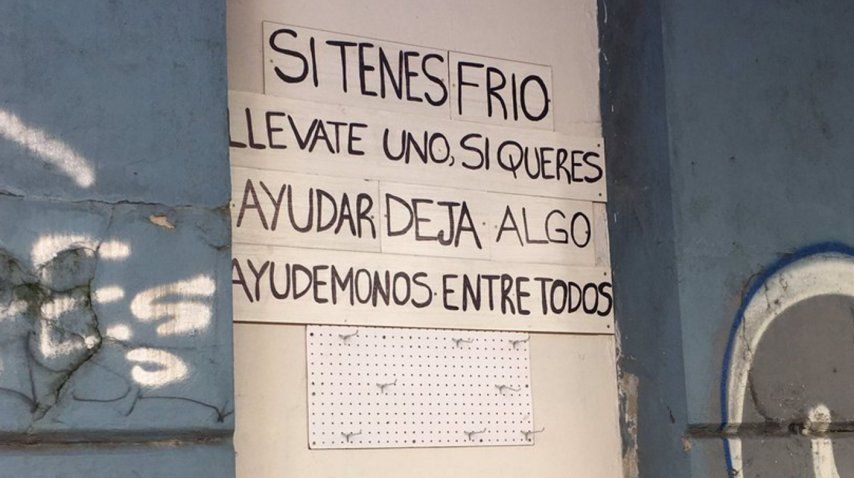 SI TENES FRIO
LLEVATE UNO, SI QUERES
AYUDAR DEJA ALGO
AYUDEMONOS ENTRE TODOS